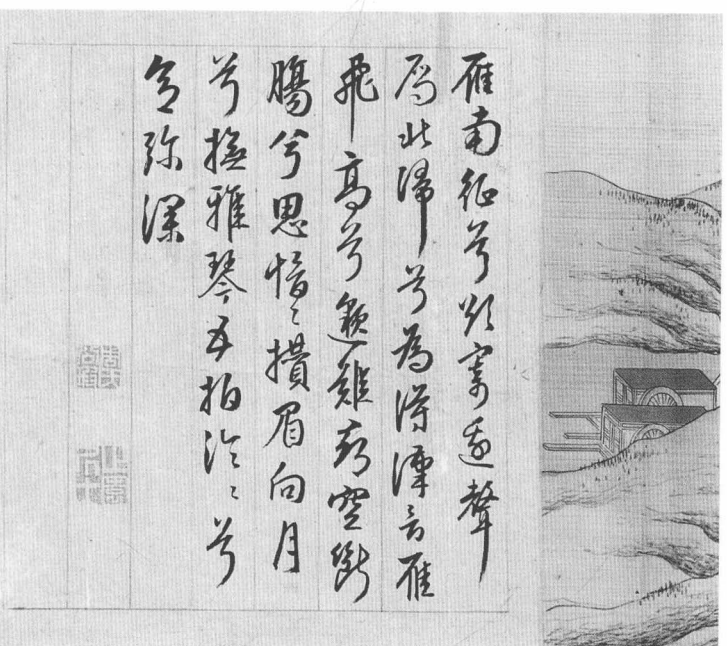 雁南征兮欲寄邊聲
鴈北歸兮為得漢音雁
飛高兮邈難尋空斷
腸兮思愔〻攢眉向月
兮撫雅琴五拍泠〻兮
意弥深